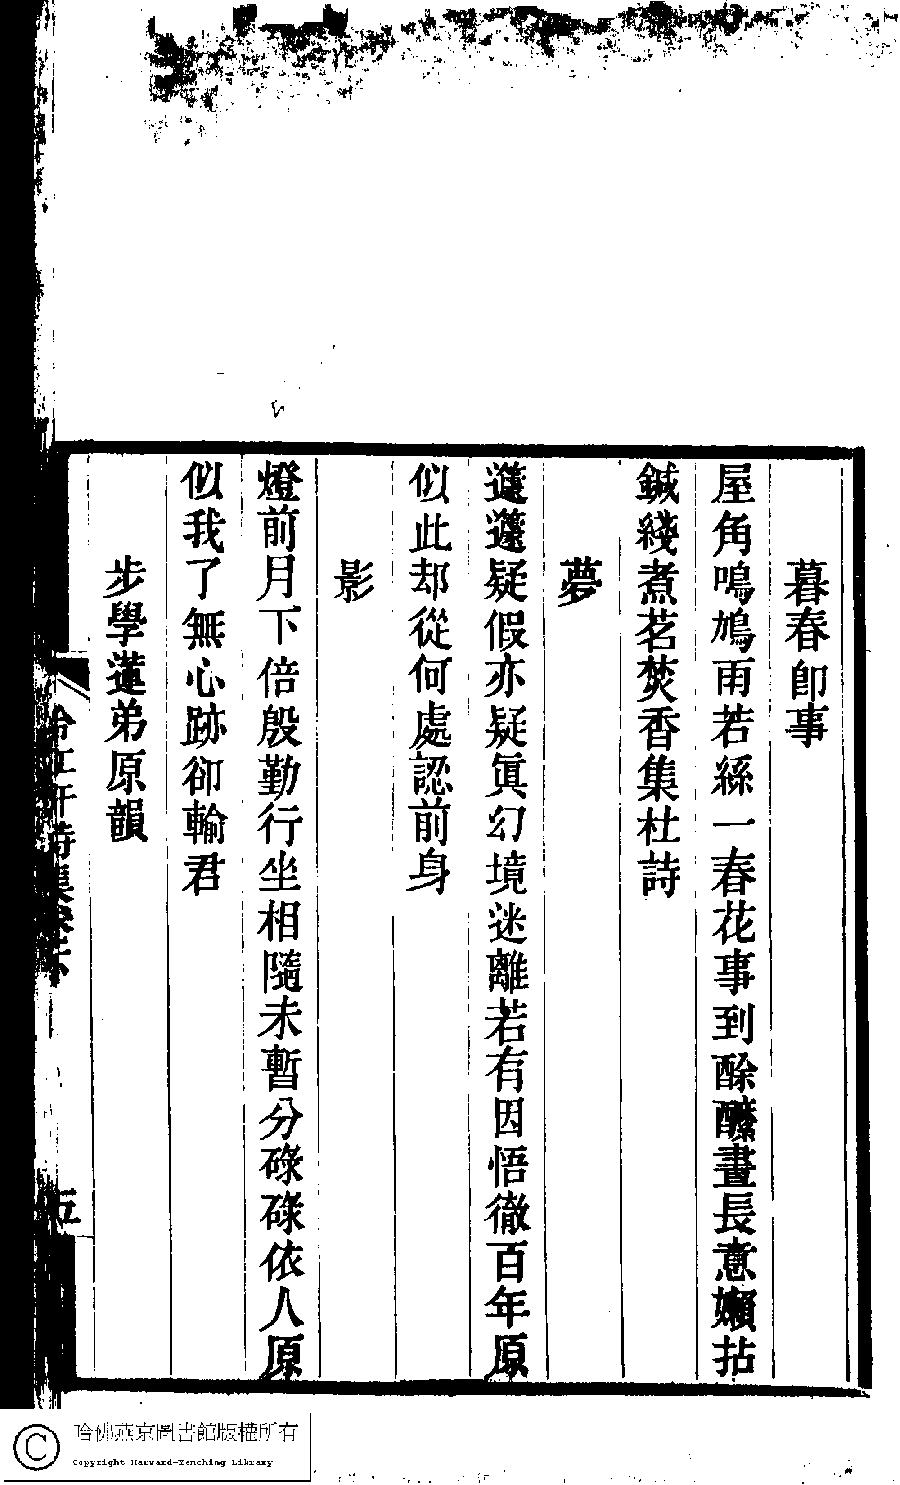 暮春卽事
屋角鳴鳩雨若絲一春花事到酴醾晝長意嬾拈
鍼綫煮茗焚香集杜詩
夢
蘧蘧疑假亦疑眞幻境迷離若有因悟徹百年原
似此却從何處認前身
影
燈前月下倍殷勤行坐相隨未暫分碌碌依人原
似我了無心跡卻輸君
步學蓮弟原韻
詩集卷下
五
哈佛燕京圖書館版權所有
Copyright Harvard-Yenching Library